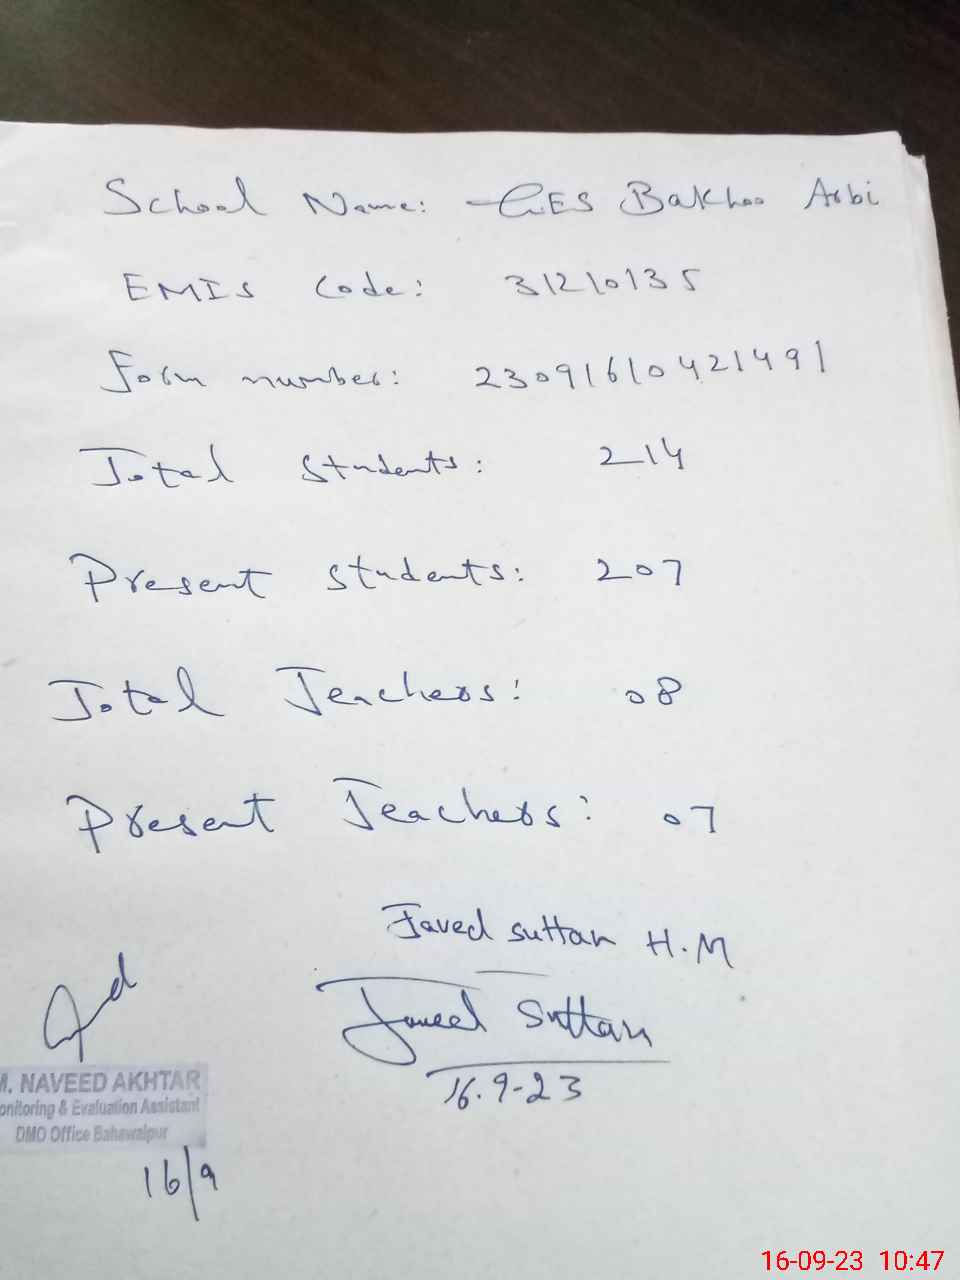 School Name: GES Bakhoo Arbi
EMIS Code: 31210135
Form number: 23091610421491
Total Students: 214
Present Students: 207
Total Teachers: 08
Present Teachers: 07
Javed Suttan H.M
Javeed Suttan
16.9-23
M. NAVEED AKHTAR
onitoring & Evaluation Assistant
DMO Office Bahawalpur
16/9
16-09-23 10:47